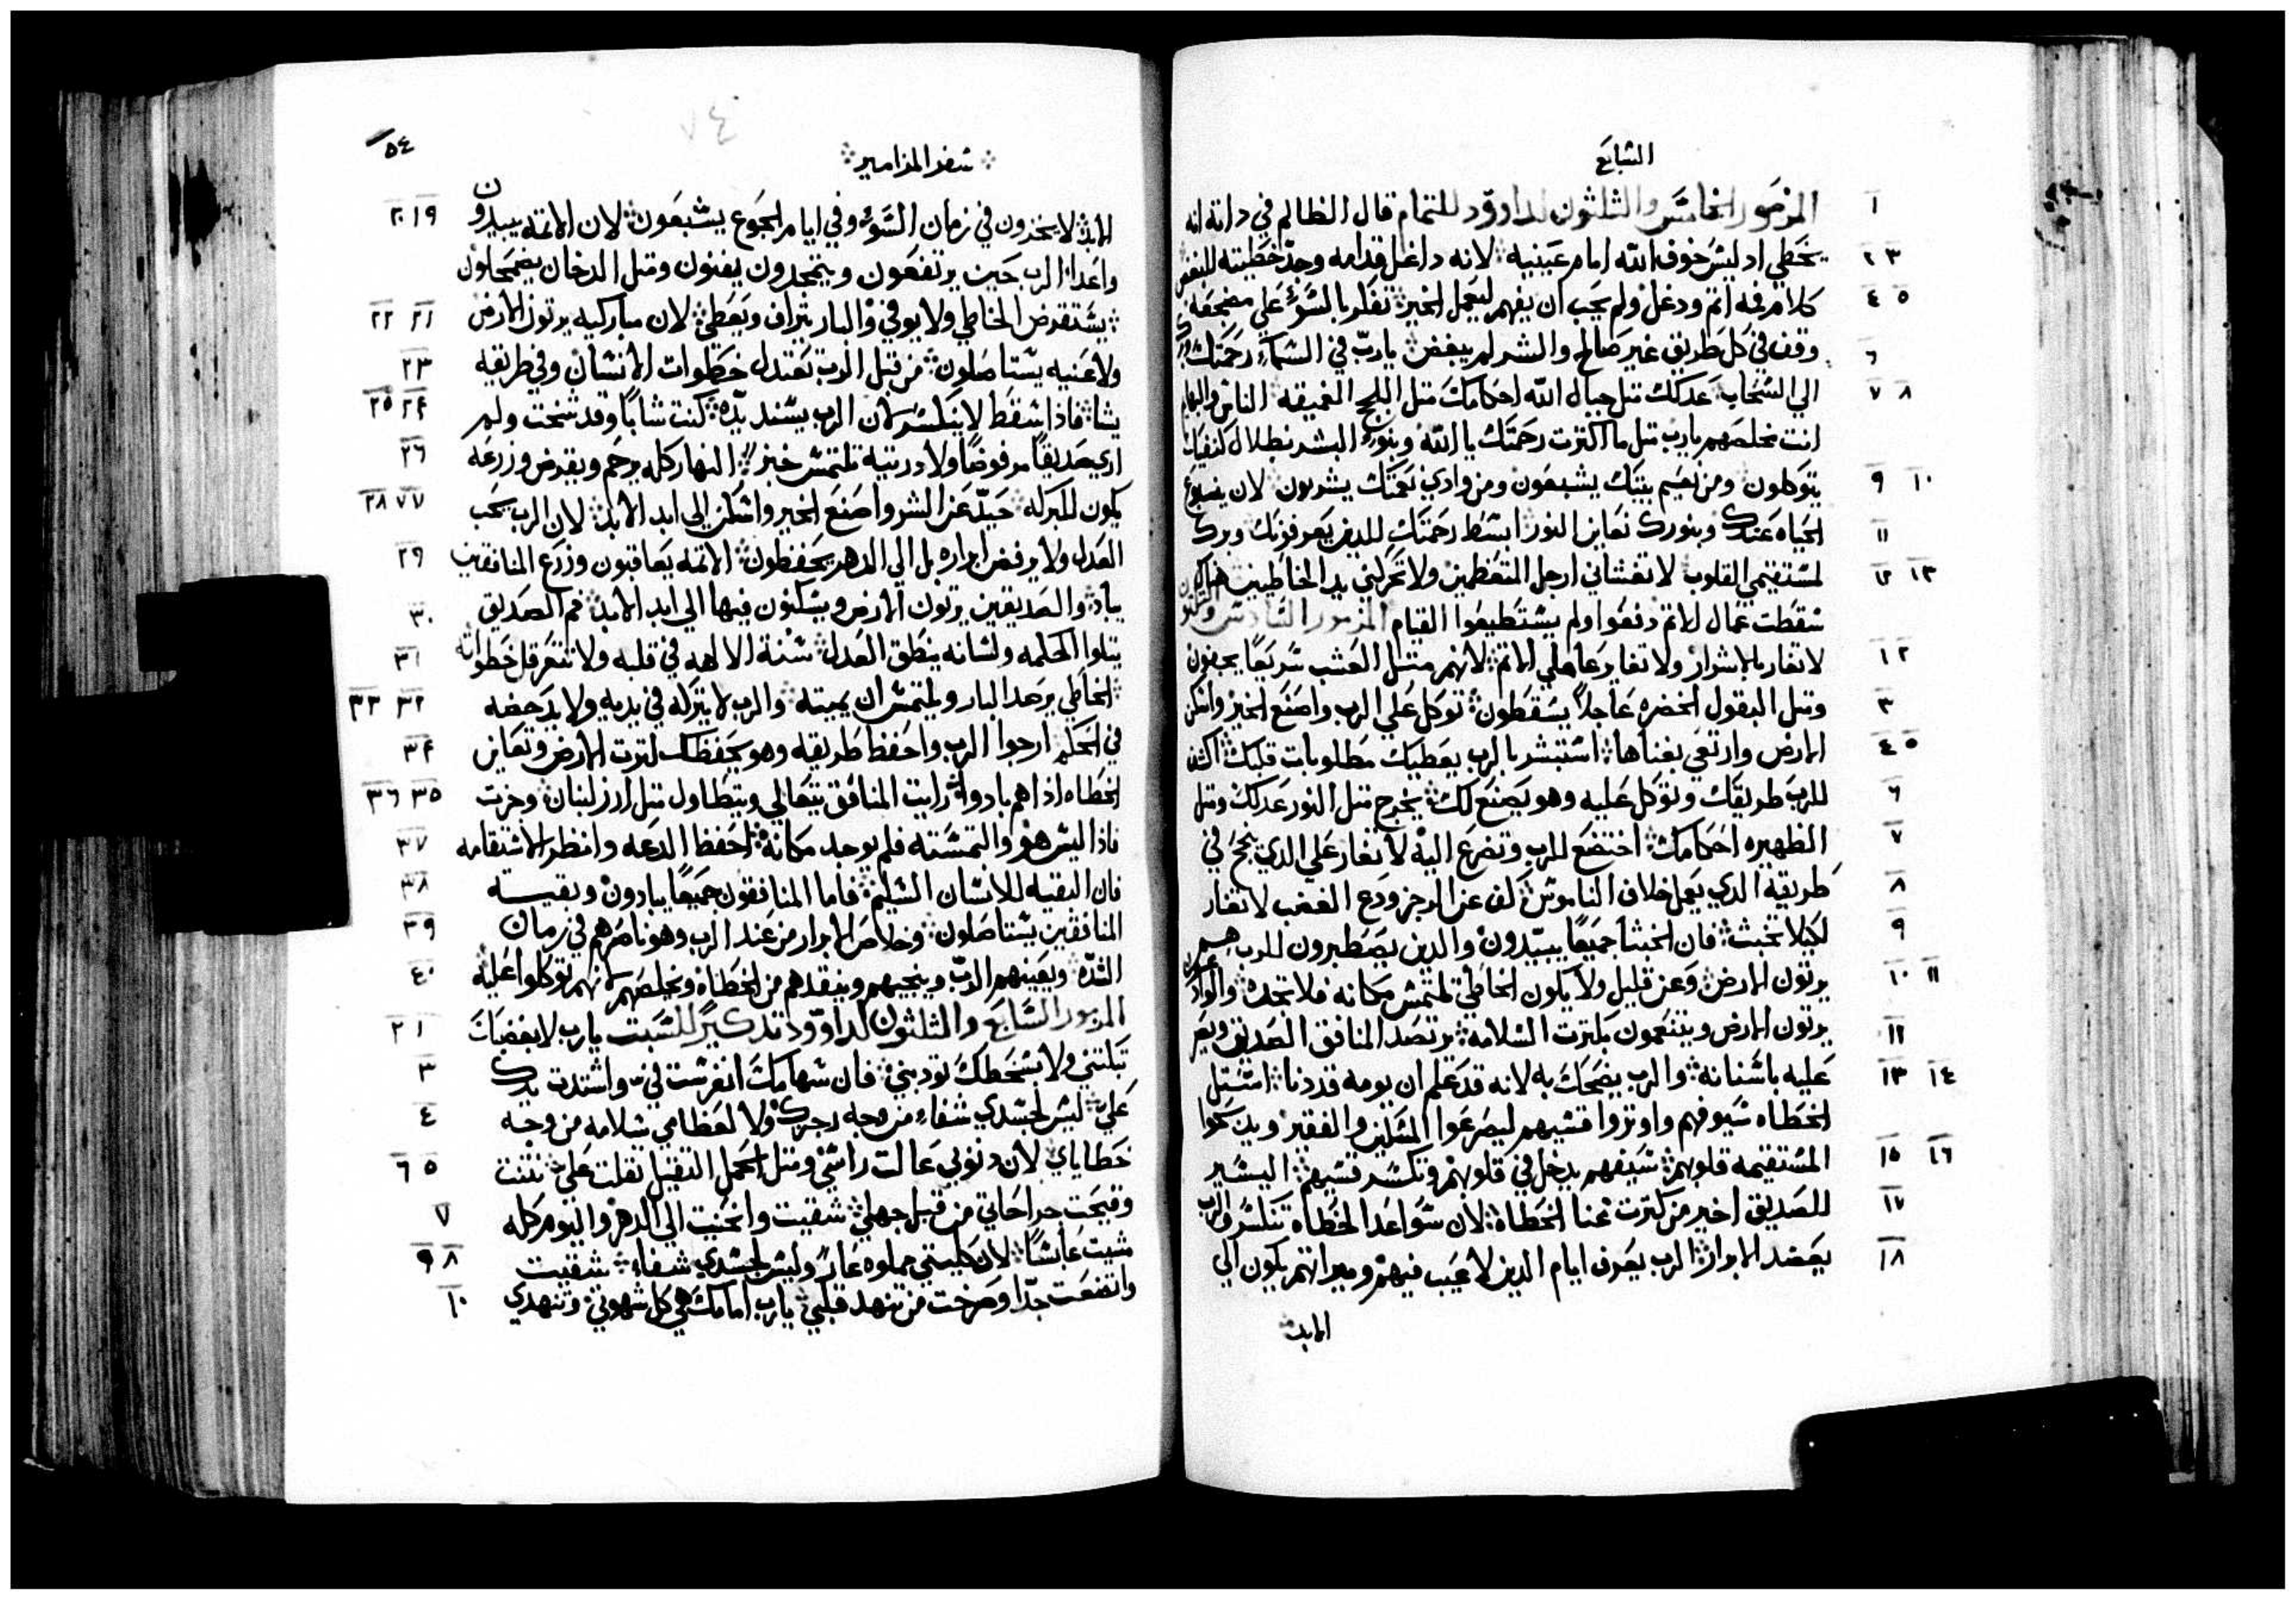 السابع
١ المزمور الخامس والثلثون لداوود للتمام قال الظالم في داته انه
٢ ٣ يخطي اد ليس خوف الله امام عينيه لانه داغل قدامه وجد خطيته للبغض
٤ ٥ كلام فمه اتم ودغل ولم يحب ان يفهم ليعمل الخير تفكر بالسوء علي مضجعه
٦ وقف في كل طريق غير صالح والشر لم يبغض يارب في السماء رحمتك
٧ ٨ الي السحاب عدلك متل جبال الله احكامك متل اللجج العميقه الناس والبهايم
انت تخلصهم يارب متل ما اكترت رحمتك يا الله وبنو البشر بظلال كنفيك
٩ ١٠ يتوكلون ومن نعيم بيتك يشبعون ومن وادي نعمتك يشربون لان ينبوع
١١ الحياه عندك وبنورك نعاين النور ابسط رحمتك للدين يعرفونك وبرك
١٢ ١٣ لمستقيمي القلوب لا تغشاني ارجل المتعظمين ولا تحركني يد الخاطيين هناك
سقطت عمال الاتم دفعوا ولم يستطيعوا القيام المزمور السادس والثلثون
١ ٢ لا تغار بالاشرار ولا تغاير عاملي الاتم لانهم متل العشب سريعا يجفون
٣ ومتل البقول الخضره عاجلا يسقطون توكل علي الرب واصنع الخير واسكن
٤ ٥ الارض وارتعي بغناها استبشر بالرب يعطيك مطلوبات قلبك اكشف
٦ للرب طريقك وتوكل عليه وهو يصنع لك يخرج متل النور عدلك ومتل
٧ الظهيره احكامك اختضع للرب وتضرع اليه لا تغار علي الدي ينجح في
٨ طريقه الدي يعمل خلاف الناموس كف عن الرجز ودع الغضب لا تغار
٩ لكيلا تخبث فان الخبثا جميعا يبيدون والدين يصطبرون للرب هم
١٠ ١١ يرتون الارض وعن قليل ولا يكون الخاطي تلتمس مكانه فلا تجده والودعا
١٢ يرتون الارض ويتنعمون بكترت السلامه يرتصد المنافق الصديق ويصر
١٣ ١٤ عليه باسنانه والرب يضحك به لانه قد علم ان يومه قد دنا استل
الخطاه سيوفهم واوتروا قسيهم ليصرعوا المسكين والفقير ويدبحوا
١٥ ١٦ المستقيمه قلوبهم سيفهم يدخل في قلوبهم وتكسر قسيهم اليسير
١٧ للصديق اخير من كترت غنا الخطاه لان سواعد الخطاه تنكسر والرب
١٨ يعضد الابرار الرب يعرف ايام الدين لا عيب فيهم وميراتهم يكون الي
الابد
سفر المزامير ٥٤
٧٤
١٩ ٢٠ الابد لا يخزون في زمان السوء وفي ايام الجوع يشبعون لان الاتمه يبيدون
واعدا الرب حين يرتفعون ويتمجدون يفنون ومتل الدخان يضمحلون
٢١ ٢٢ يستقرض الخاطي ولا يوفي والبار يتراف ويعطي لان مباركيه يرتون الارض
٢٣ ولاعنيه يستاصلون من قبل الرب تعتدل خطوات الانسان وفي طريقه
٢٤ ٢٥ يشا فاذا سقط لا ينكسر لان الرب يسند يده كنت شابا وقد شخت ولم
٢٦ اري صديقا مرفوضا ولا دريته تلتمس خبز النهار كله يرحم ويقرض وزرعه
٢٧ ٢٨ يكون للبركه حيد عن الشر واصنع الخير واسكن الي ابد الابد لان الرب يحب
٢٩ العدل ولا يرفض ابراره بل الي الدهر يحفظون الاتمه يعاقبون وزرع المنافقين
٣٠ يباد والصديقين يرتون الارض ويسكنون فيها الي ابد الابد فم الصديق
٣١ يتلوا الحكمه ولسانه ينطق العدل سنة الاهه في قلبه ولا تتعرقل خطواته
٣٢ ٣٣ الخاطي يرصد البار ويلتمس ان يميته والرب لا يتركه في يديه ولا يدحضه
٣٤ في الحكم ارجوا الرب واحفظ طريقه وهو يحفظك لترت الارض وتعاين
٣٥ ٣٦ الخطاه اذا هم بادوا رايت المنافق يتعالي ويتطاول متل ارز لبنان وجزت
٣٧ فاذا ليس هو والتمسته فلم يوجد مكانه احفظ الدعه وانظر الاستقامه
٣٨ فان البقيه للانسان السليم فاما المنافقون جميعا يبادون وبقيت
٣٩ المنافقين يستاصلون وخلاص الابرار من عند الرب وهو ناصرهم في زمان
٤٠ الشده ويعينهم الرب وينجيهم وينقدهم من الخطاه ويخلصهم لانهم توكلوا عليه
١ ٢ المزمور السابع والثلثون لداوود تدكير للسبت يارب لا بغضبك
٣ تبكتني ولا بسخطك تودبني فان سهامك انغرست في واشتدت يدك
٤ علي ليس لجسدي شفاء من وجه رجزك ولا لعظامي سلامه من وجه
٥ ٦ خطاياي لان دنوبي عالت راسي ومتل الحمل التقيل تقلت علي نتنت
٧ وقيحت جراحاتي من قبل جهلي شقيت وانحنيت الي الدهر واليوم كله
٨ ٩ مشيت عابسا لان كليتي مملوه عارا وليس لجسدي شفاء شقيت
١٠ واتضعت جدا وصرخت من تنهد قلبي يارب امامك هي كل شهوتي وتنهدي